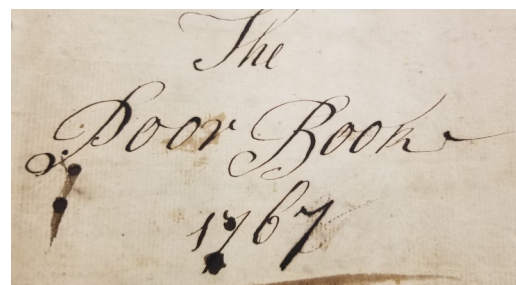 The
Poor Book
1767